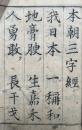 本朝三字經
我日本 一稱和
地膏腴 生嘉禾
人勇敢 長干戈